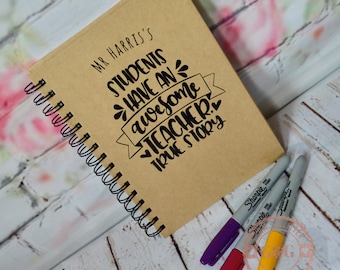 MR HARRIS'S
STUDENTS
HAVE AN
awesome
TEACHER
TRUE STORY
Sharpie
Sharpie